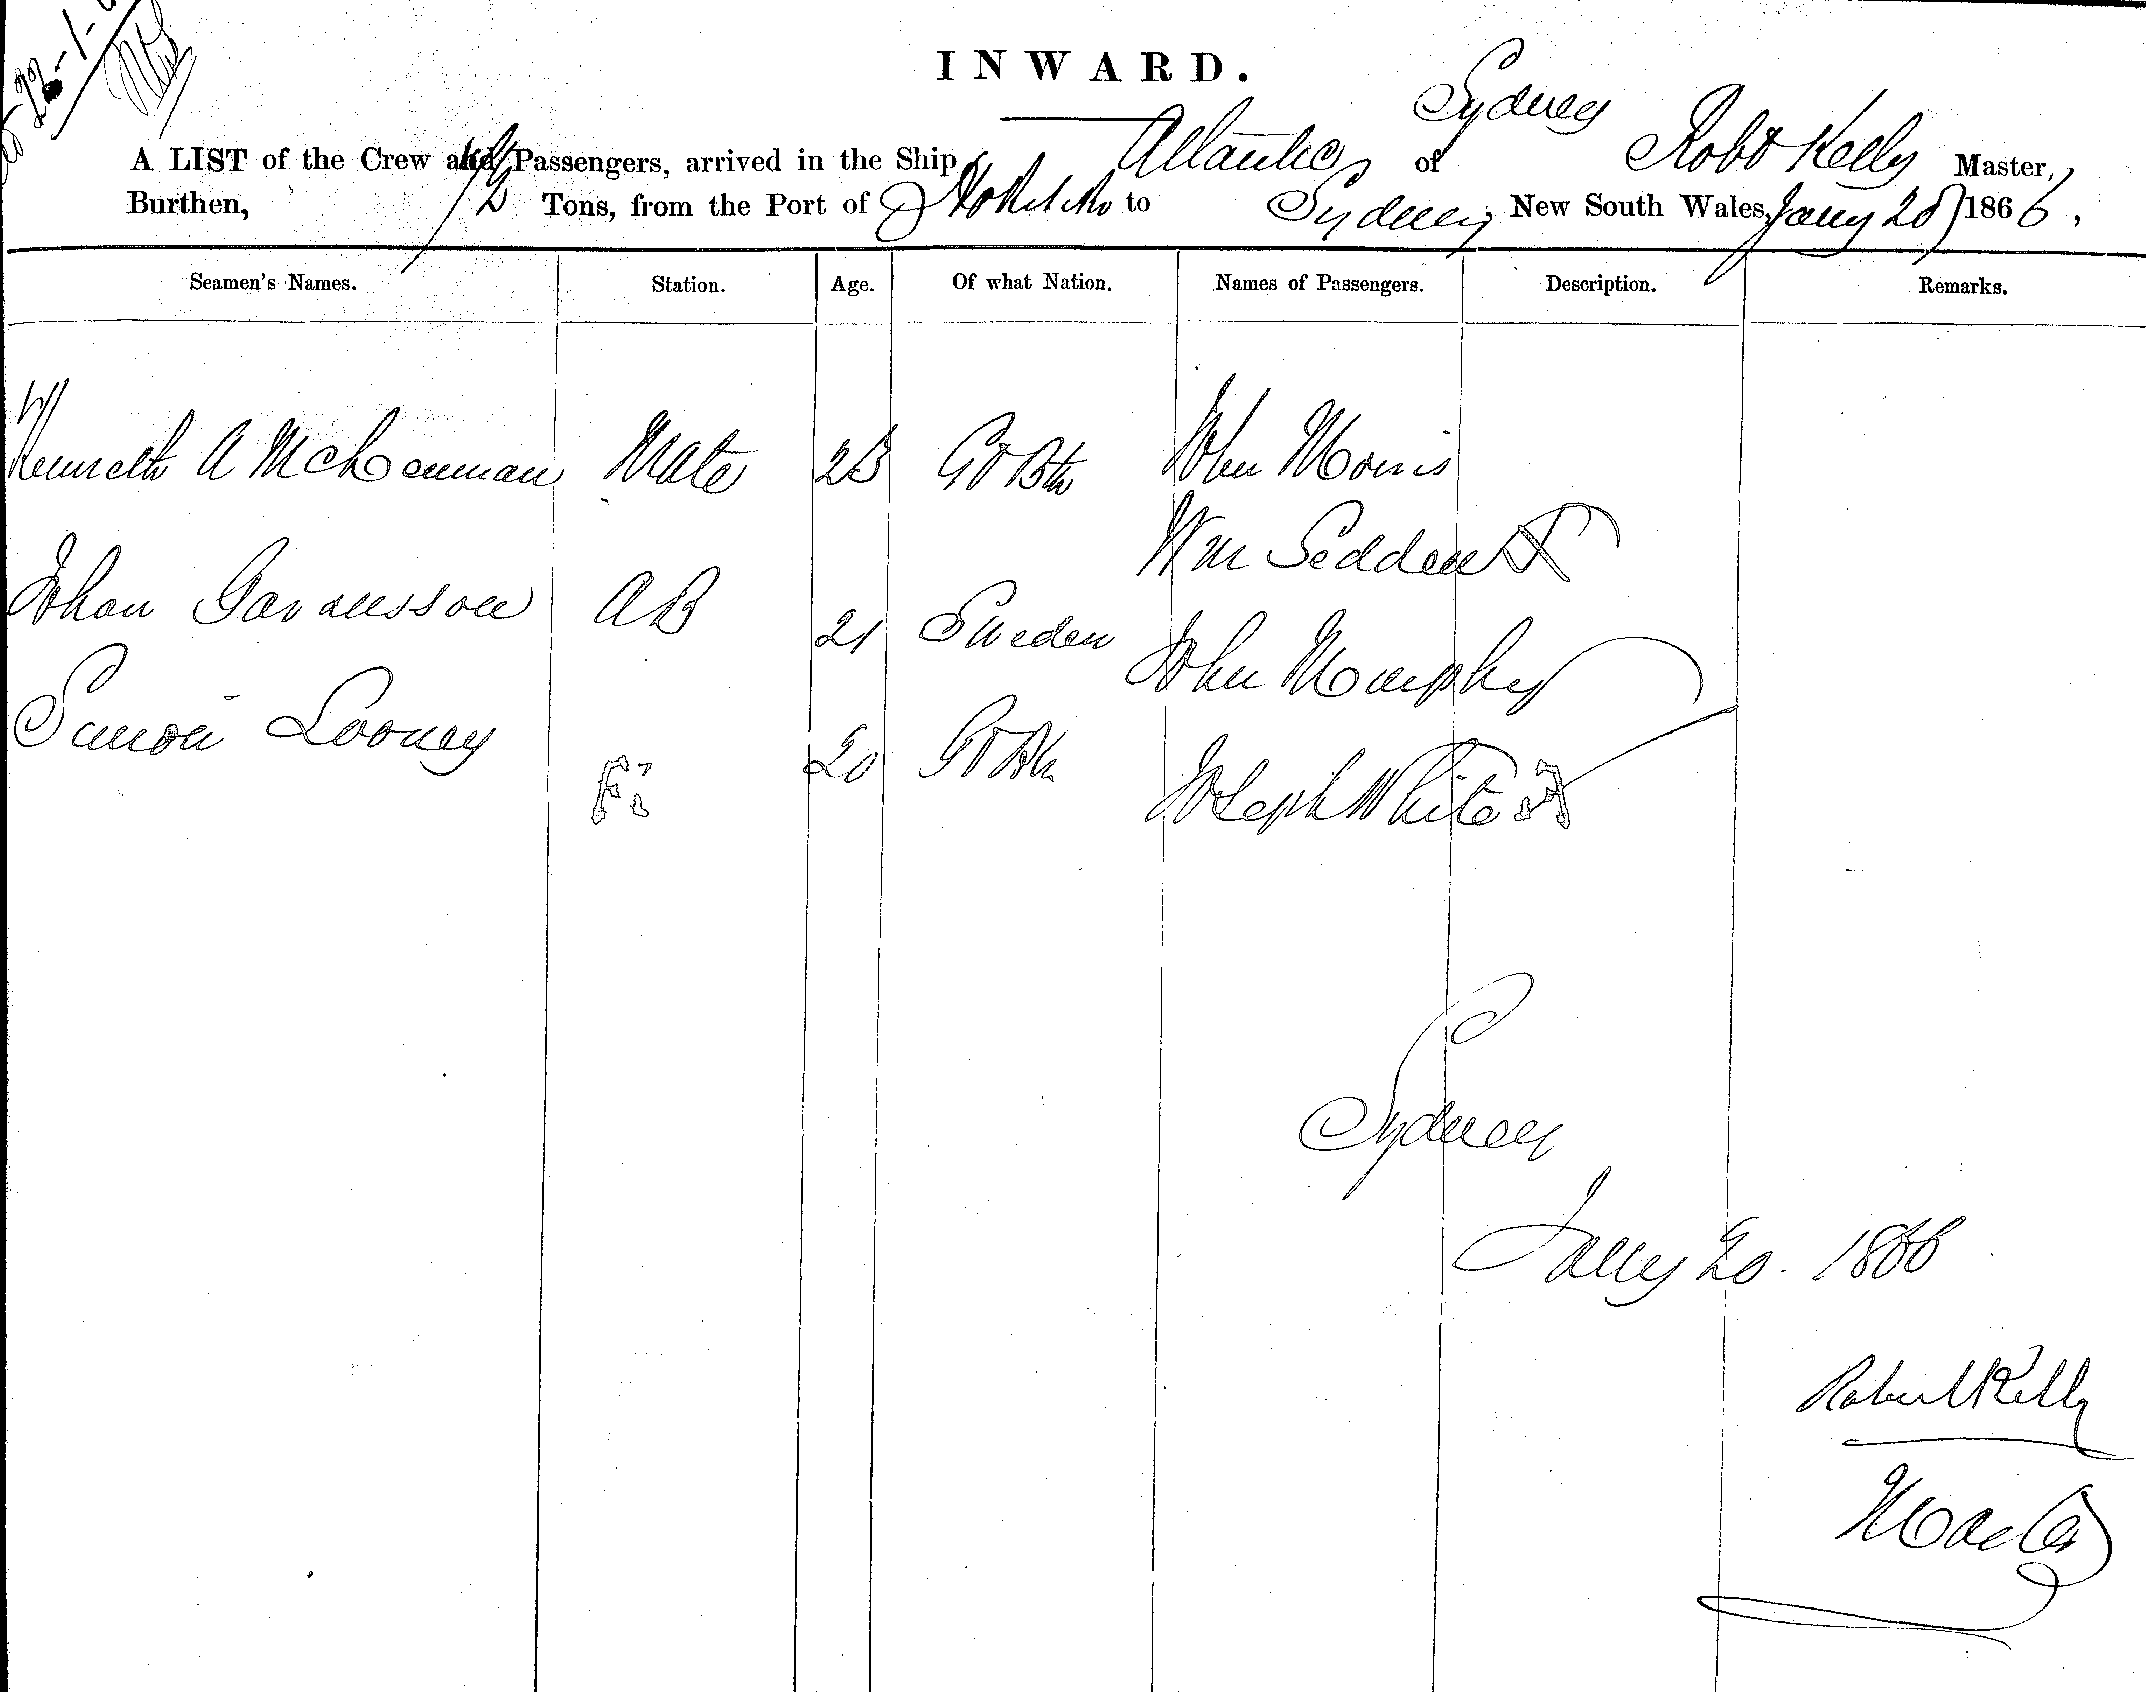 22-1-
INWARD.
Sydney
A LIST of the Crew and Passengers, arrived in the Ship Atlantic of Robt Kelly Master,
Burthen, Tons, from the Port of Hokitika to Sydney New South Wales, Jany 20 1866.
Seamen's Names. Station. Age. Of what Nation. Names of Passengers. Description. Remarks.
Kenneth A Mate Gt Btn John Morris
Wm Sedden
Johan AB 21 Sweden John Murphy
Simon Looney 20 Gt Btn Joseph White
Sydney
Jany 20. 1866
Robert Kelly
Master